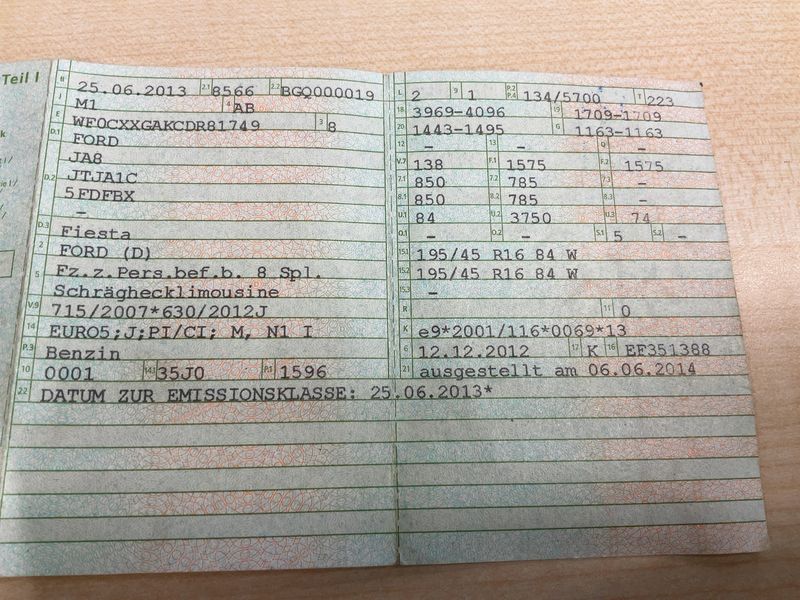 Teil I
B 25.06.2013 2.1 8566 2.2 BGQ000019
J M1 4 AB
E WF0CXXGAKCDR81749 3 8
D.1 FORD
JA8
D.2 JTJA1C
5FDFBX
–
D.3 Fiesta
2 FORD (D)
5 Fz.z.Pers.bef.b. 8 Spl.
Schräghecklimousine
V.9 715/2007*630/2012J
14 EURO5;J;PI/CI; M, N1 I
P.3 Benzin
10 0001 14.1 35J0 P.1 1596
22 DATUM ZUR EMISSIONSKLASSE: 25.06.2013*
L 2 9 1 P.2 P.4 134/5700 T 223
18 3969-4096 19 1709-1709
20 1443-1495 G 1163-1163
12 – 13 – Q –
V.7 138 F.1 1575 F.2 1575
7.1 850 7.2 785 7.3 –
8.1 850 8.2 785 8.3 –
U.1 84 U.2 3750 U.3 74
O.1 – O.2 – S.1 5 S.2 –
15.1 195/45 R16 84 W
15.2 195/45 R16 84 W
15.3 –
R 11 0
K e9*2001/116*0069*13
6 12.12.2012 17 K 16 EF351388
21 ausgestellt am 06.06.2014